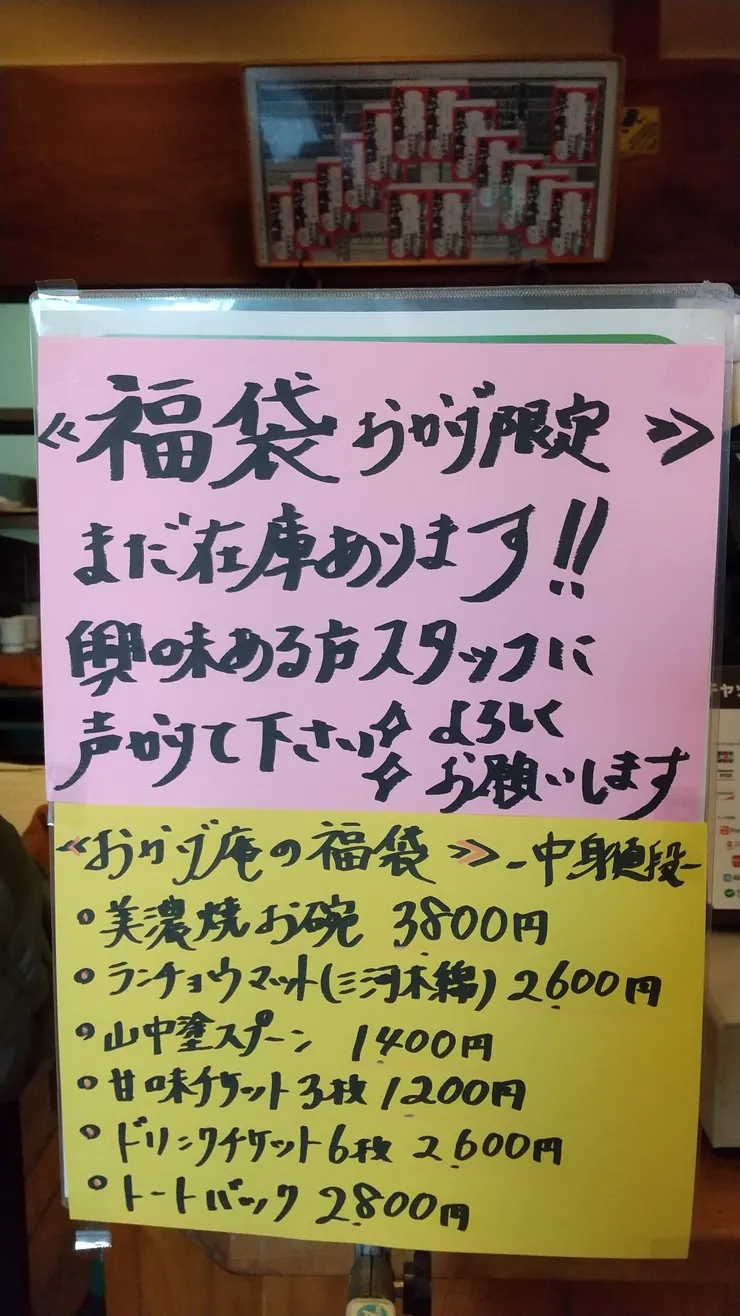 ≪福袋おかげ限定≫
まだ在庫あります!!
興味ある方スタッフに
声かけて下さい
よろしく
お願いします
≪おかげ庵の福袋≫-中身値段-
美濃焼お碗 3800円
ランチョウマット(三河木綿) 2600円
山中塗スプーン 1400円
甘味チケット3枚 1200円
ドリンクチケット6枚 2600円
トートバック 2800円